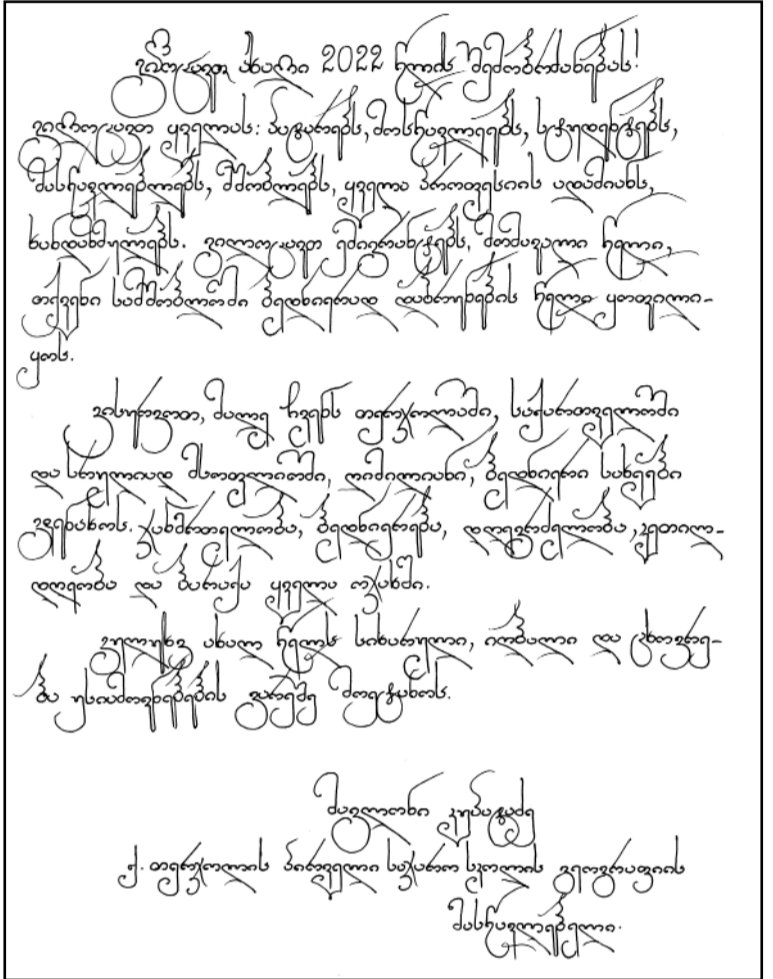 გილოცავთ ახალი 2022 წლის შემობრძანებას!
გილოცავთ ყველას: პატარებს, მოსწავლეებს, სტუდენტებს,
მასწავლებლებს, მშობლებს, ყველა პროფესიის ადამიანს,
ხანდაზმულებს. გილოცავთ ემიგრანტებს, მომავალი წელი,
თქვენი სამშობლოში ბედნიერად დაბრუნების წელი ყოფილი-
ყოს.
გისურვოთ, მალე ჩვენს თერჯოლაში, საქართველოში
და სრულიად მსოფლიოში, ღიმილიანი, ბედნიერი სახეები
გვენახოს. ჯანმრთელობა, ბედნიერება, დღეგრძელობა, კეთილ-
დღეობა და ბარაქა ყველა ოჯახში.
გულუხვ ახალ წელს სიხარული, იღბალი და ცხოვრე-
ბა უსიამოვნებების გარეშე მოეტანოს.
კუპატაძე
ქ. თერჯოლის პირველი საჯარო სკოლის გეოგრაფიის
მასწავლებელი.